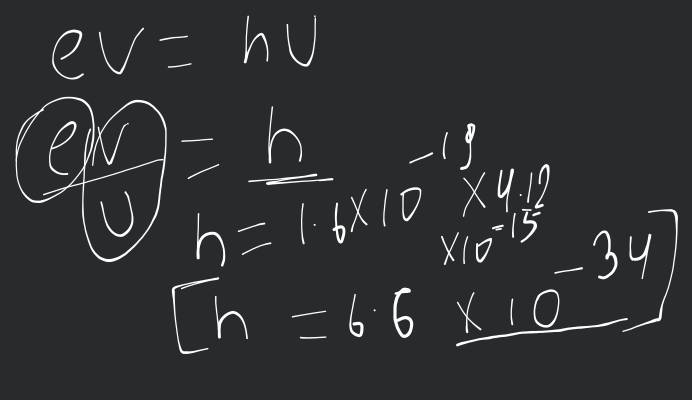 ev = hυ
ev/υ = h
h = 1.6×10⁻¹⁹ × 4.12
×10⁻¹⁵
[h = 6.6 × 10⁻³⁴]